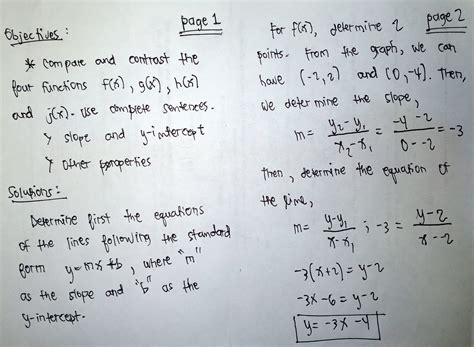 page 1
Objectives:
* Compare and contrast the
four functions f(x), g(x), h(x)
and j(x). Use complete sentences.
> slope and y-intercept
> other properties
Solutions:
Determine first the equations
of the lines following the standard
form y=mx+b, where "m"
as the slope and "b" as the
y-intercept.
page 2
For f(x), determine 2
points. From the graph, we can
have (-2,2) and (0,-4). Then,
we determine the slope,
m = (y₂-y₁)/(x₂-x₁) = (-4-2)/(0--2) = -3
then, determine the equation of
the line,
m = (y-y₁)/(x-x₁) ; -3 = (y-2)/(x--2)
-3(x+2) = y-2
-3x-6 = y-2
y = -3x-4